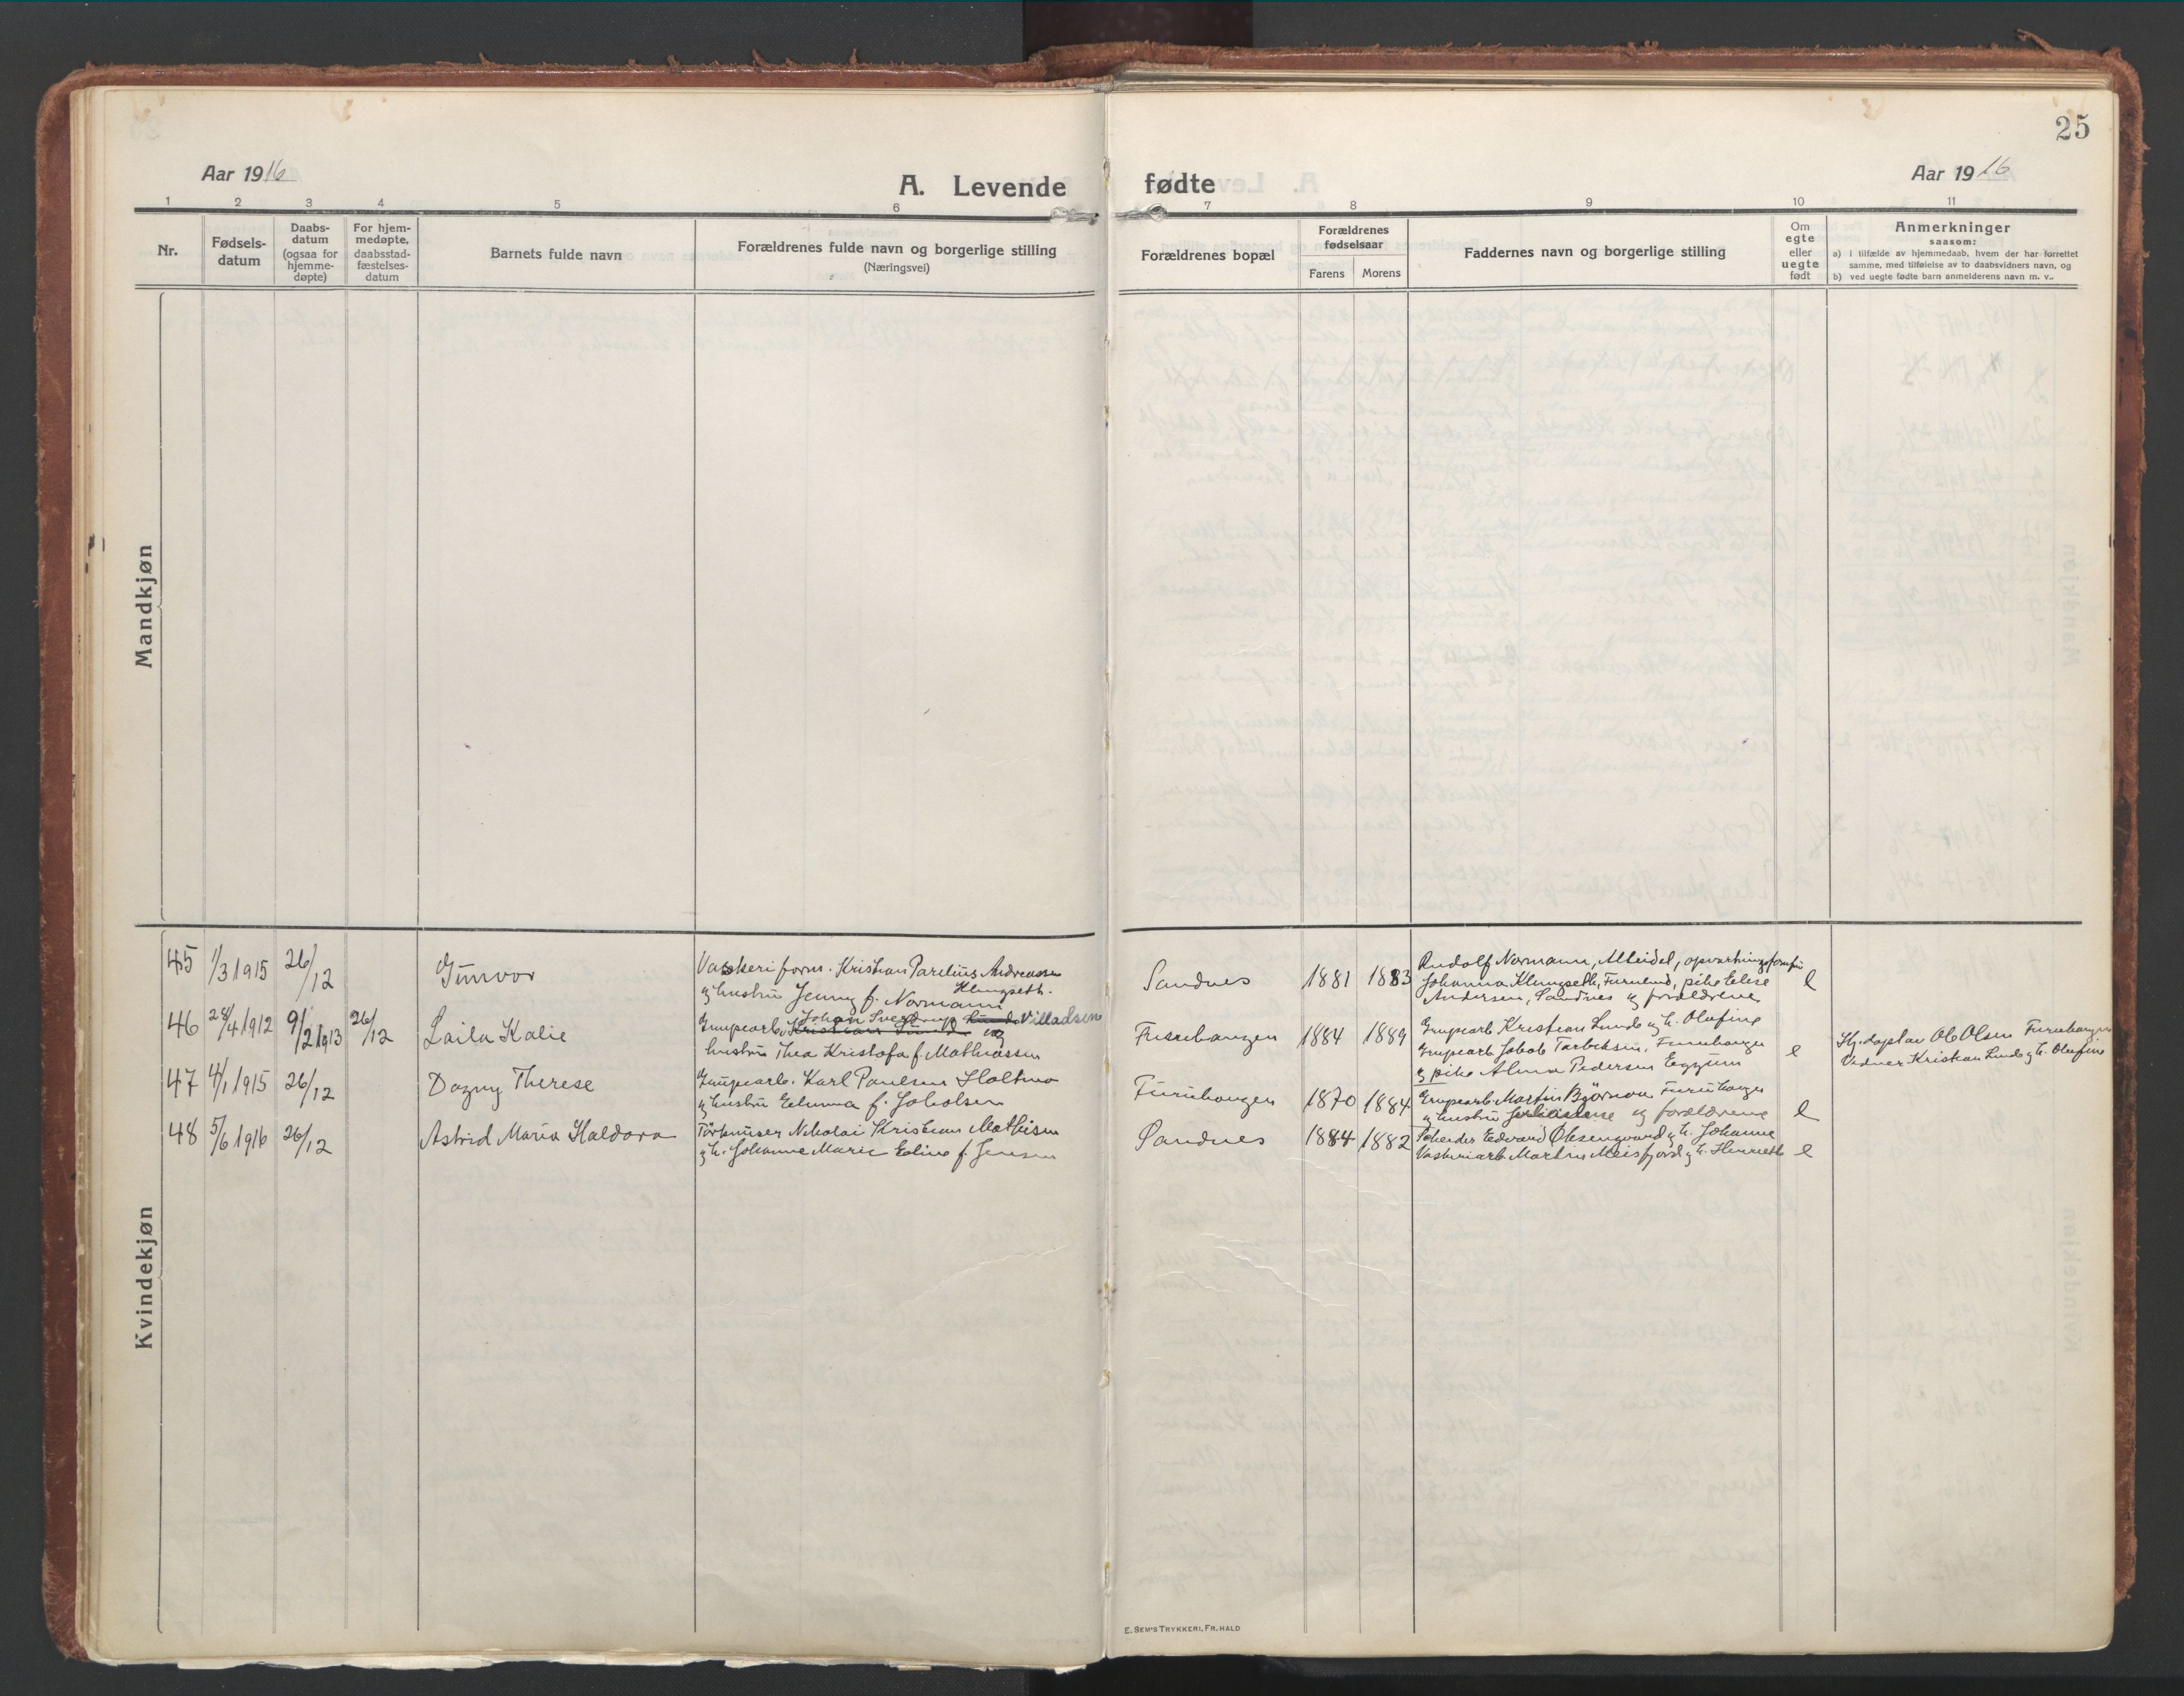 25
Aar 1916
A. Levende fødte
Aar 1916
1 2 3 4 5 6 7 8 9 10 11
Nr.
Fødsels-
datum
Daabs-
datum
(ogsaa for
hjemme-
døpte)
For hjem-
medøpte,
daabsstad-
fæstelses-
datum
Barnets fulde navn
Forældrenes fulde navn og borgerlige stilling
(Næringsvei)
Forældrenes bopæl
Forældrenes
fødselsaar
Farens Morens
Faddernes navn og borgerlige stilling
Om
egte
eller
uegte
født
Anmerkninger
saasom:
a) i tilfælde av hjemmedaab, hvem der har forrettet
samme, med tilføielse av to daabsvidners navn, og
b) ved uegte fødte barn anmelderens navn m. v..
Mandkjøn
Kvindekjøn
45 1/3 1915 26/12 Gunvor
Vaskeriform. Kristian Parelius Andreassen
Klungseth.
og hustru Jenny f. Normann
Sandnes 1881 1883
Rudolf Normann, Alteidet, opvartningsjomfru
Johanna Klungseth, Furulund, pike Elise
Andersen, Sandnes og forældrene
e
46 28/4 1912 9/2 1913 26/12 Laila Kalie
Johan Sverdrup Lund Villadsen
Grupearb. Kristian Lund og
hustru Thea Kristofa f. Mathiassen
Furuhaugen 1884 1889
Grupearb Kristian Lund og h. Olufine
Grupearb. Jakob Torbeksen, Furuhaugen
og pike Alma Pedersen Eggum
e
Hj.døpt av Ole Olsen Furuhaugen
Vidner Kristian Lund og h. Olufine
47 4/1 1915 26/12 Dagny Therese
Grupearb. Karl Paulsen Holtmo
og hustru Edvarda f. Jakobsen
Furuhaugen 1870 1884
Grupearb Martin Bjørnvou Furuhaugen
og hustru og forældrene
e
48 5/6 1916 26/12 Astrid Maria Haldora
Nikolai Kristian Mathisen
og h. Johanne Marie Eline f. Jensen
Sandnes 1884 1882
Edvard og h. Johanne
Vaskeriarb. Martin Meisfjord og h. Henriette
e
E. SEM'S TRYKKERI, FR.HALD